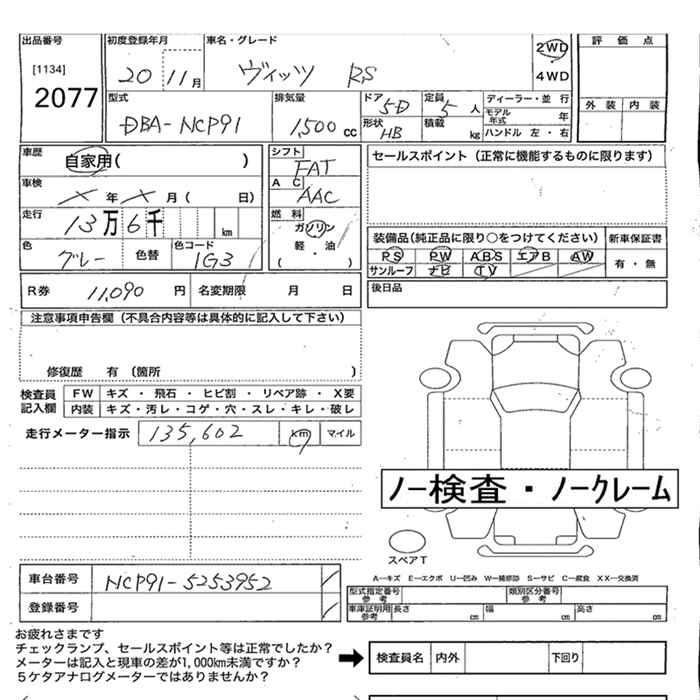 出品番号 初度登録年月 車名・グレード 評価点
[1134] 20 11月 ヴィッツ RS 2WD
2077 4WD
型式 排気量 ドア 5D 定員 5人 ディーラー・並 行 外 装 内 装
DBA-NCP91 1,500cc 形状 HB 積載 kg モデル年式 年
ハンドル 左・右
車歴 自家用( ) シフト FAT セールスポイント（正常に機能するものに限ります）
車検 × 年 × 月 ( 日) A C AAC
走行 13万6千 km 燃 料 ガソリン
軽・油
( )
色 グレー 色替 色コード 1G3
装備品（純正品に限り○をつけてください） 新車保証書
PS PW ABS エアB AW 有・無
サンルーフ ナビ TV
R券 11,090 円 名変期限 月 日 後日品
注意事項申告欄（不具合内容等は具体的に記入して下さい）
修復歴 有 （箇所 ）
検査員 FW キズ ・ 飛石 ・ ヒビ割 ・ リペア跡 ・ X要
記入欄 内装 キズ・汚レ・コゲ・穴・スレ・キレ・破レ
走行メーター指示 135,602 km マイル
ノー検査・ノークレーム
スペアT
A―キズ E―エクボ U―凹み W―補修跡 S―サビ C―腐食 XX―交換済
車台番号 NCP91-5253952 型式指定番号 参考 類別区分番号 参考
登録番号 車庫証明用 参考 長さ cm 幅 cm 高さ cm
お疲れさまです
チェックランプ、セールスポイント等は正常でしたか？
メーターは記入と現車の差が1,000km未満ですか？
５ケタアナログメーターではありませんか？
検査員名 内外 下回り